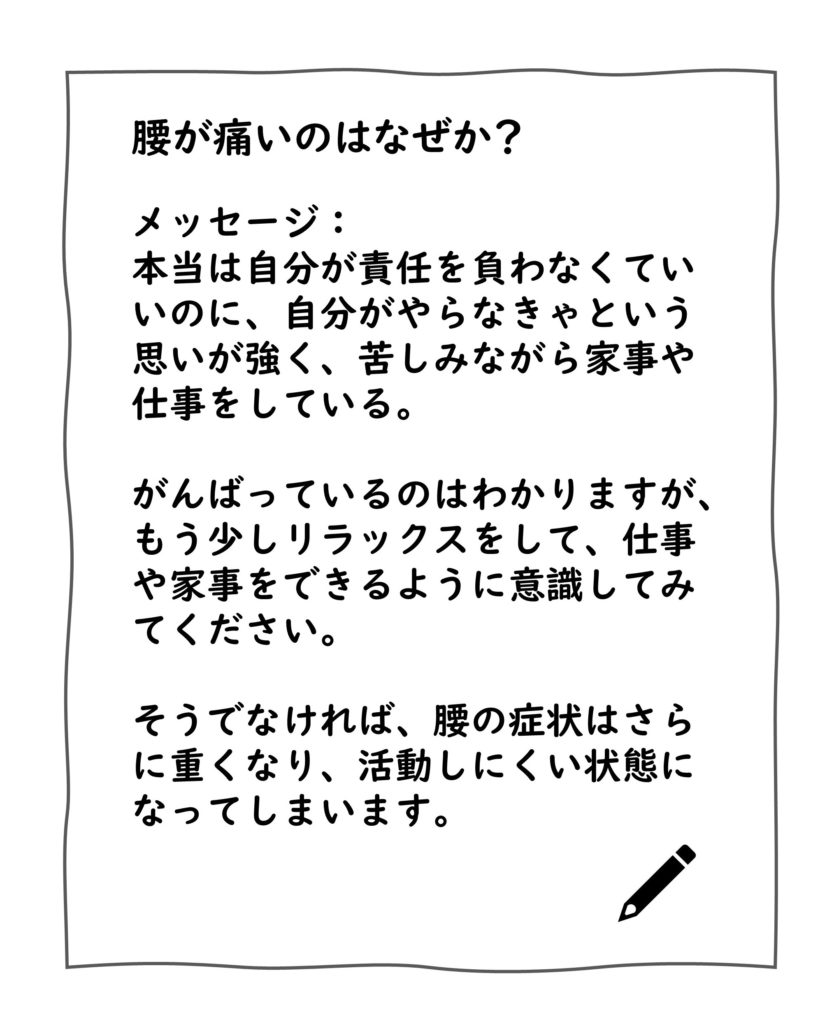 腰が痛いのはなぜか？
メッセージ：
本当は自分が責任を負わなくてい
いのに、自分がやらなきゃという
思いが強く、苦しみながら家事や
仕事をしている。
がんばっているのはわかりますが、
もう少しリラックスをして、仕事
や家事をできるように意識してみ
てください。
そうでなければ、腰の症状はさら
に重くなり、活動しにくい状態に
なってしまいます。